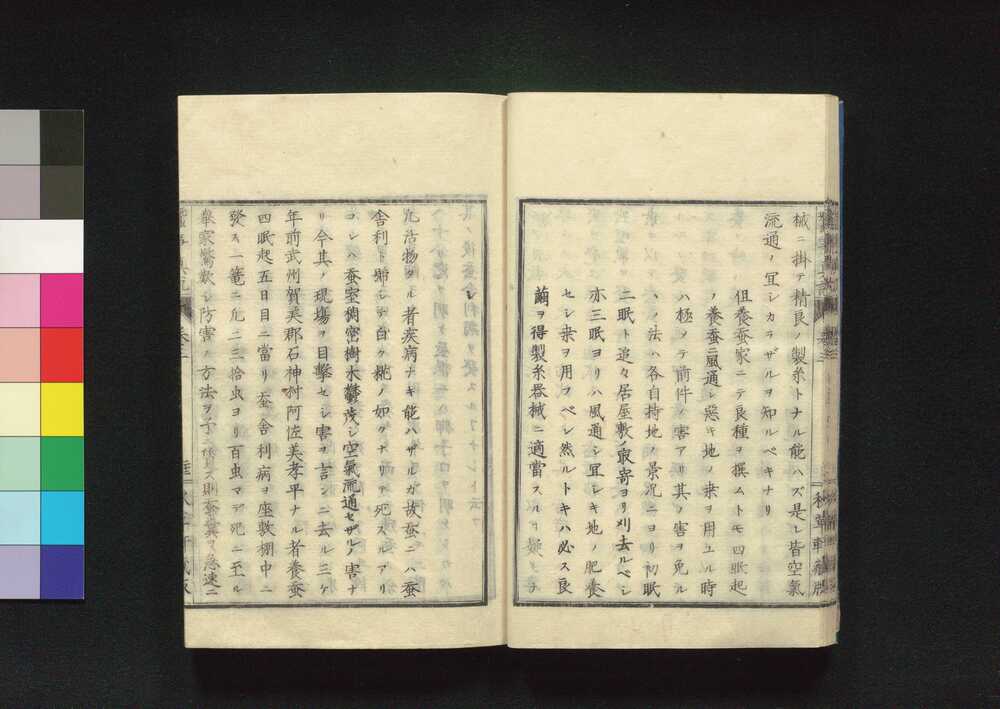 械ニ掛テ精良ノ製糸トナル能ハズ是レ皆空氣
流通ノ宜シカラザルヲ知ルベキナリ
但養蚕家ニテ良種ヲ撰ムトモ四眠起
ノ養蚕ニ風通シ惡キ地ノ桒ヲ用ユル時
ハ極メテ前件ノ害アリ其ノ害ヲ免ル
ハノ法ハ各自持地ノ景況ニヨリ初眠
二眠ト追々居屋敷ノ最寄ヨリ刈去ルベシ
亦三眠ヨリハ風通シ宜シキ地ノ肥養
セシ桒ヲ用フベシ然ルトキハ必ス良
繭ヲ得製糸器械ニ適當スルヿ疑ヒナ
シ
凡活物タル者疾病ナキ能ハザルガ故蚕ニハ蚕
舎利ト唱シテ白ク桃ノ如クナリテ死スルアリ
コレハ蚕室稠密樹木欝茂シ空氣流通セザルノ害ナ
リ今其ノ現塲ヲ目擊セシ害ヲ言ンニ去ル三ケ
年前武州賀美郡石神村阿佐美孝平ナル者養蚕
四眠起五日目ニ當リ蚕舎利病ヲ座敷棚中ニ
發ス一篭ニ凢二三拾虫ヨリ百虫マデ死ニ至ル
擧家驚歎シ防害ノ方法ヲ予ニ請フ則蚕糞ヲ急速ニ